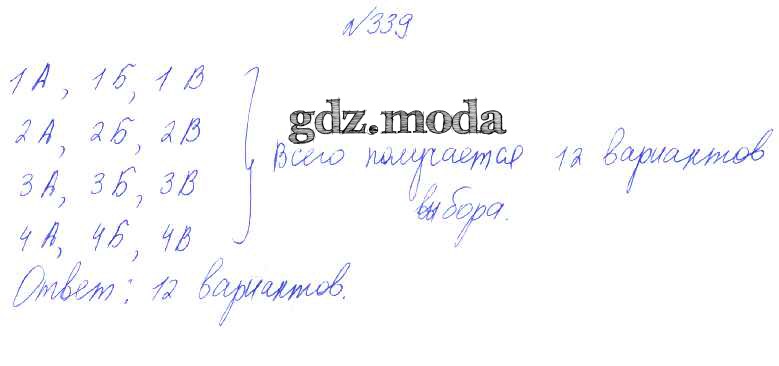 №339
1А, 1Б, 1В
2А, 2Б, 2В
3А, 3Б, 3В
4А, 4Б, 4В
gdz.moda
Всего получается 12 вариантов
выбора.
Ответ: 12 вариантов.